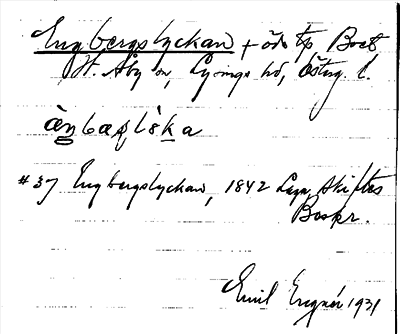 Engbergslyckan + öde tp Boet
St. Åby sn, Lysings hd, Östrg. l.
àŋbæʂlìka
#37 Engbergslyckan, 1842 Laga Skiftes
Beskr.
Emil Engnér 1931